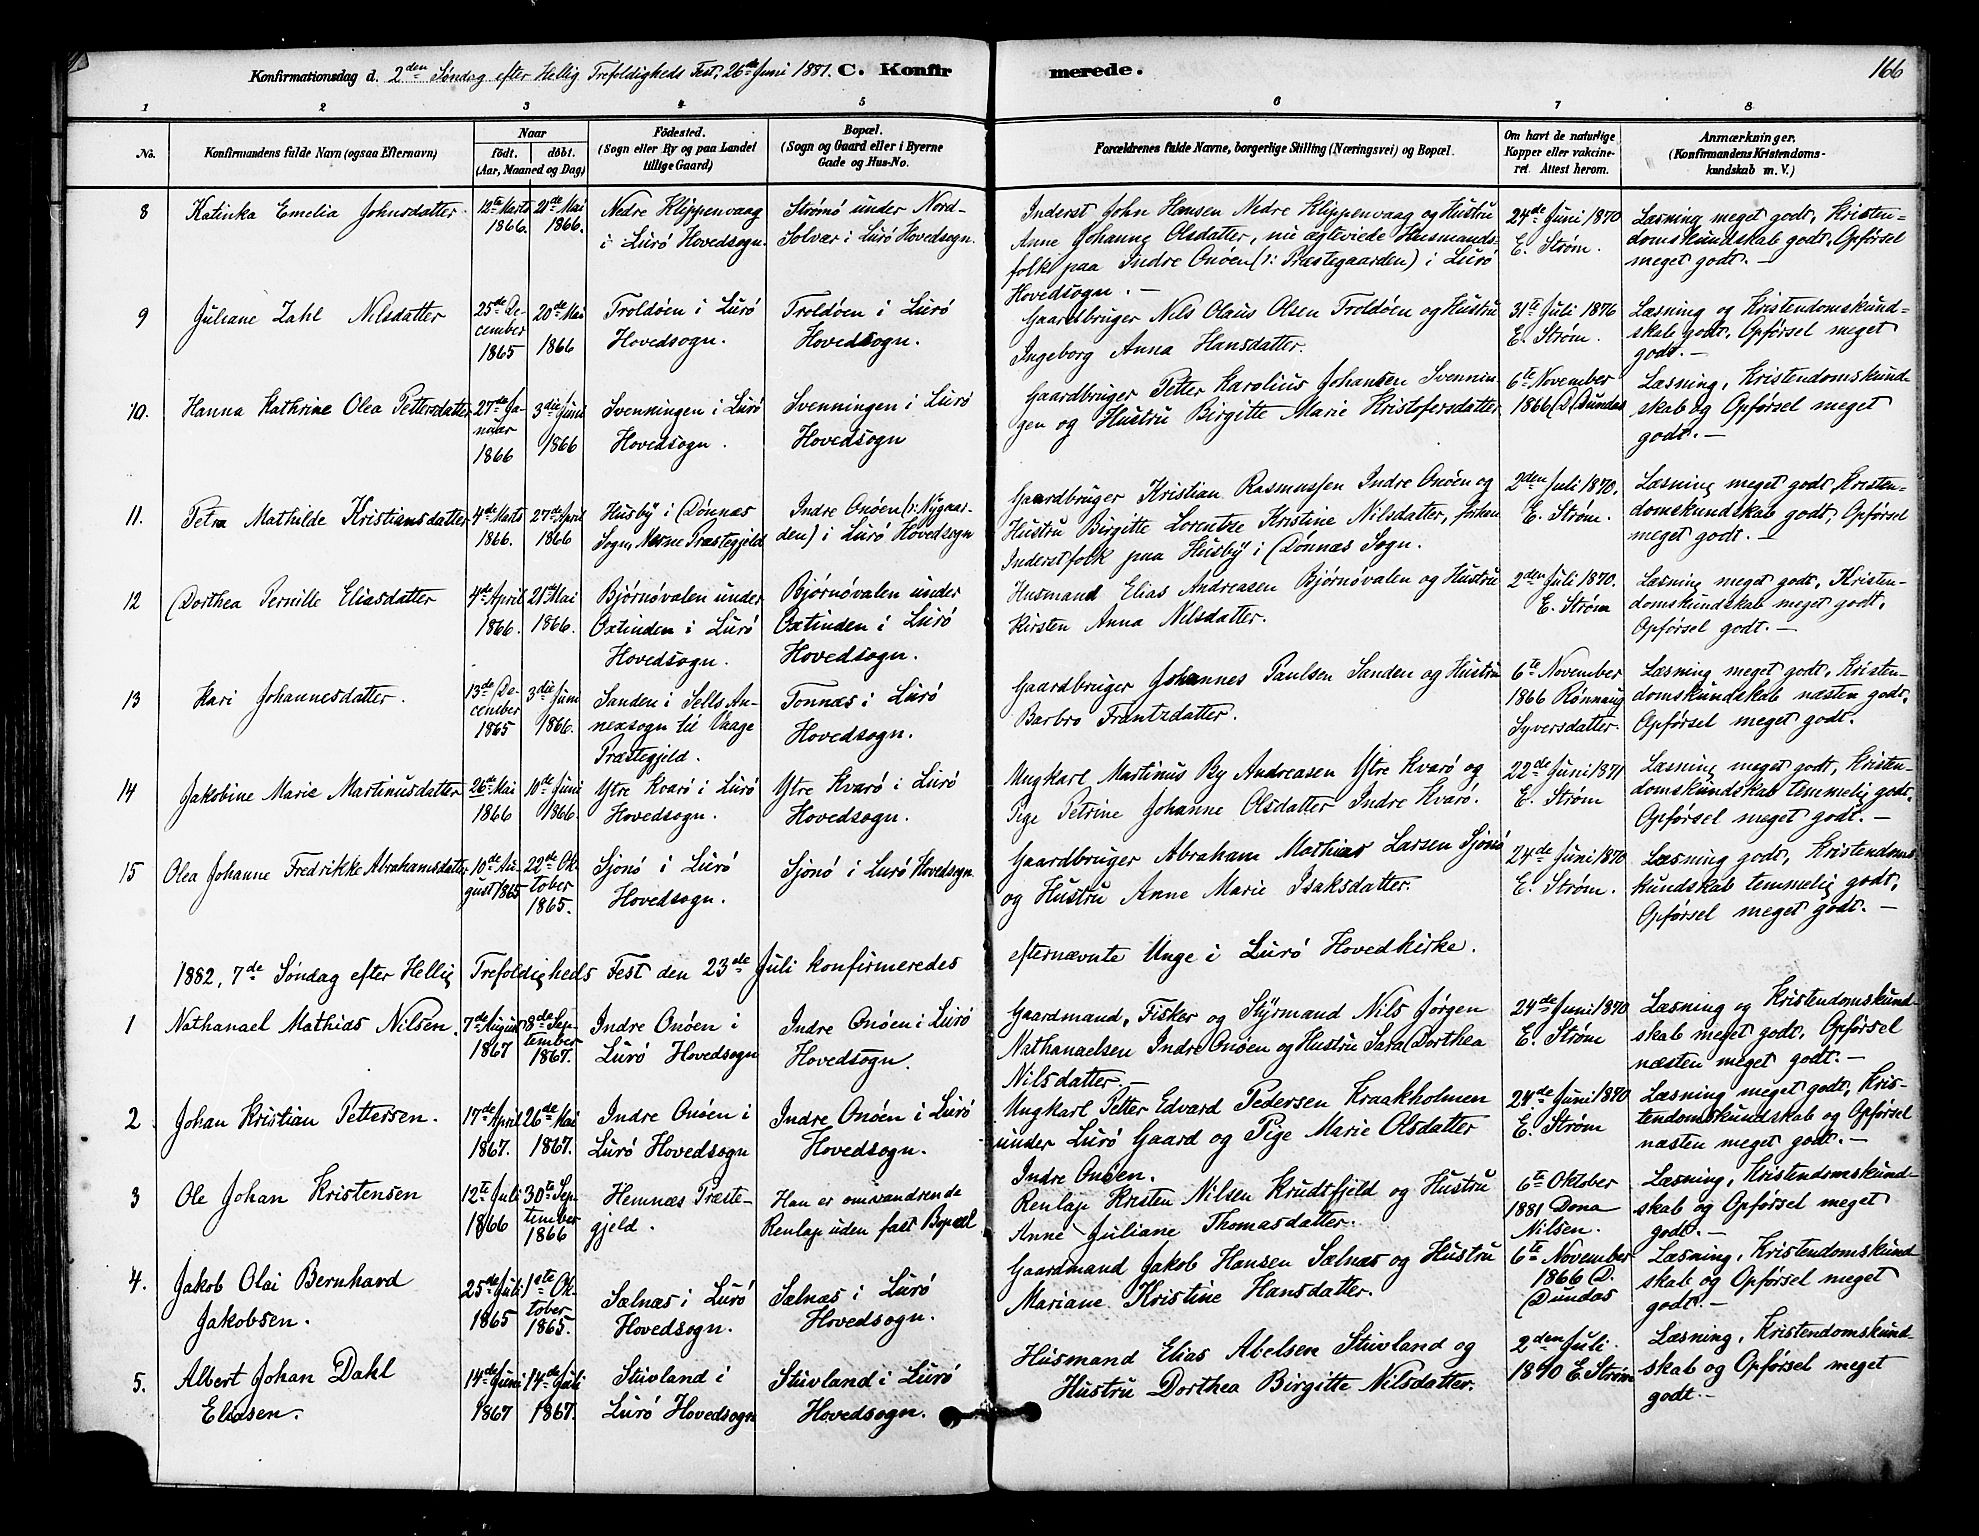 Konfirmationsdag d. 2den Søndag efter Hellig Trefoldigheds Fest, 26de Juni 1881. C. Konfir merede. 166
1 2 3 4 5 6 7 8
No.
Konfirmandens fulde Navn (ogsaa Efternavn)
Naar
født. døbt.
(Aar, Maaned og Dag)
Födested.
(Sogn eller By og paa Landet
tillige Gaard)
Bopæl.
(Sogn og Gaard eller i Byerne
Gade og Hus-No.
Forældrenes fulde Navne, borgerlige Stilling (Næringsvei) og Bopæl.
Om havt de naturlige
Kopper eller vakcine-
ret. Attest herom.
Anmærkninger,
(Konfirmandens Kristendoms-
kundskab m. V.)
8
Katinka Emelia Johnsdatter.
12te Marts
1866.
21de Mai
1866.
Nedre Klippenvaag
i Lurö Hovedsogn.
Strømö under Nord-
Solvær i Lurö Hovedsogn.
Inderst John Hansen Nedre Klippenvaag og Hustru
Anne Johanne Olsdatter, nu ægteviede Husmands-
folk paa Indre Onöen (ɔ: Præstegaarden) i Lurö
Hovedsogn. —
24de Juni 1870
E. Strøm.
Læsning meget godt, Kristen-
domskundskab godt, Opførsel
meget godt. —
9
Juliane Zahl Nilsdatter
25de De-
cember
1865
20de Mai
1866
Troldöen i Lurö
Hovedsogn.
Troldöen i Lurö
Hovedsogn.
Gaardbruger Nils Olaus Olsen Troldöen og Hustru
Ingeborg Anna Hansdatter.
31te Juli 1876
E. Strøm.
Læsning og Kristendomskund-
skab godt, Opførsel meget
godt. —
10.
Hanna Kathrine Olea Pettersdatter
27de Ja-
nuar
1866
3die Juni
1866
Svenningen i Lurö
Hovedsogn.
Svenningen i Lurö
Hovedsogn
Gaardbruger Petter Karolius Johansen Svennin
gen og Hustru Birgitte Marie Kristofersdatter
6te November
1866 D. Dundas
Læsning, Kristendomskund-
skab og Opførsel meget
godt. —
11.
Petra Mathilde Kristiansdatter
4de Marts
1866.
27de April
1866
Husby i Dønnæs
Sogn, Næsne Præstegjeld
Indre Onöen (ɔ: Nygaar-
den) i Lurö Hovedsogn
Gaardbruger Kristian Rasmussen Indre Onöen og
Hustru Birgitte Lorentze Kristine Nilsdatter, forhen
Inderstfolk paa Husby i Dønnæs Sogn.
2den Juli 1870.
E. Strøm.
Læsning meget godt, Kristen-
domskundskab godt, Opførsel
meget godt. —
12
Dorthea Pernille Eliasdatter
4de April
1866.
21de Mai
1866.
Bjørnövalen under
Oxtinden i Lurö
Hovedsogn.
Bjørnövalen under
Oxtinden i Lurö
Hovedsogn.
Husmand Elias Andreasen Bjørnövalen og Hustru
Kirsten Anna Nilsdatter.
2den Juli 1870.
E. Strøm
Læsning meget godt, Kristen-
domskundskab meget godt,
Opførsel godt. —
13
Kari Johannesdatter.
13de De-
cember
1865
3die Juni
1866.
Sanden i Sells An-
nexsogn til Vaage
Præstegjeld.
Tonnæs i Lurö
Hovedsogn.
Gaardbruger Johannes Paulsen Sanden og Hustru
Barbro Frantzdatter.
6te November
1866 Rønnaug
Syversdatter.
Læsning meget godt, Kristen-
domskundskab næsten godt,
Opførsel meget godt.
14
Jakobine Marie Martinusdatter
26de Mai
1866
10de Juni
1866.
Ytre Kvarö i Lurö
Hovedsogn.
Ytre Kvarö i Lurö
Hovedsogn.
Ungkarl Martinus By Andreasen Ytre Kvarö og
Pige Petrine Johanne Olsdatter Indre Kvarö.
22de Juni 1871
E. Strøm
Læsning meget godt, Kristen-
domskundskab temmelig godt,
Opførsel meget godt. —
15
Olea Johanne Fredrikke Abrahamsdatter
10de Au-
gust 1865
22de Ok-
tober
1865.
Sjonö i Lurö
Hovedsogn.
Sjonö i Lurö Hovedsogn.
Gaardbruger Abraham Mathias Larsen Sjonö
og Hustru Anne Marie Isaksdatter.
24de Juni 1870
E. Strøm.
Læsning godt, Kristendoms-
kundskab temmelig godt,
Opførsel meget godt. —
1882, 7de Søndag efter Hellig Trefoldigheds Fest den 23de Juli konfirmeredes efternævnte Unge i Lurö Hovedkirke.
1
Nathanael Mathias Nilsen.
7de August
1867
8de Sep-
tember
1867.
Indre Onöen i
Lurö Hovedsogn
Indre Onöen i Lurö
Hovedsogn.
Gaardmand, Fisker og Styrmand Nils Jørgen
Nathanaelsen Indre Onöen og Hustru Sara Dorthea
Nilsdatter. —
24de Juni 1870
E. Strøm
Læsning og Kristendomskund-
skab meget godt, Opførsel
næsten meget godt. —
2
Johan Kristian Pettersen.
17de April
1867.
26de Mai
1867.
Indre Onöen i
Lurö Hovedsogn
Indre Onöen i Lurö
Hovedsogn.
Ungkarl Petter Edvard Pedersen Kraakholmen
under Lurö Gaard og Pige Marie Olsdatter
Indre Onöen.
24de Juni 1870
E. Strøm
Læsning meget godt, Kris-
tendomskundskab og Opførsel
næsten meget godt. —
3
Ole Johan Kristensen
12te Juli
1866
30te Sep-
tember
1866
Hemnæs Præste-
gjeld.
Han er omvandrende
Renlap uden fast Bopæl
Renlap Kristen Nilsen Krudtfjeld og Hustru
Anne Juliane Thomasdatter.
6te Oktober
1881 Dona
Nilsen.
Læsning, Kristendomskund-
skab og Opførsel meget
godt. —
4.
Jakob Olai Bernhard
Jakobsen.
25de Juli
1865
1ste Ok-
tober
1865.
Sælnæs i Lurö
Hovedsogn.
Sælnæs i Lurö
Hovedsogn.
Gaardmand Jakob Hansen Sælnæs og Hustru
Mariane Kristine Hansdatter.
6te November
1866 D.
Dundas
Læsning, Kristendomskund-
skab og Opførsel meget
godt. —
5.
Albert Johan Dahl
Eliasen.
14de Juni
1867
14de Juli
1867.
Stuvland i
Lurö Hovedsogn
Stuvland i Lurö
Hovedsogn.
Husmand Elias Abelsen Stuvland og
Hustru Dorthea Birgitte Nilsdatter.
2den Juli
1870 E. Strøm
Læsning, Kristendomskund-
skab og Opførsel meget
godt. —